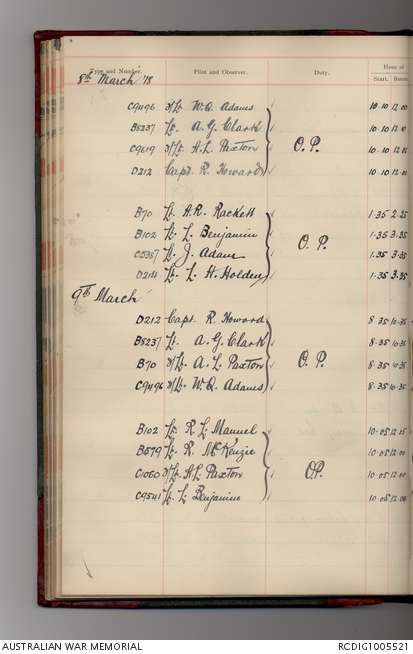 Type and Number. Pilot and Observer. Duty. Hour of
Start. Return
8th March '18
C9496 2/Lt. W. Q. Adams 10.10 12.00
B5237 Lt. A. G. Clark 10.10 12.10
C9619 2/Lt. A. L. Paxton O.P. 10.10
D212 Capt. R. Howard 10.10
B70 Lt. A. R. Rackett 1.35 2.25
B102 Lt. L. Benjamin O.P. 1.35 3.35
Lt. J. Adam 1.35 3.35
Lt. L. H. Holden 1.35 3.35
9th March
D212 Capt. R. Howard 8.35 10.35
B5237 Lt. A. G. Clark 8.35 10.35
B70 2/Lt. A. L. Paxton O.P. 8.35 10.35
C9496 2/Lt. W. Q. Adams 8.35 10.35
B102 Lt. R. L. Manuel 10.05
B579 Lt. R. McKenzie 10.05 12.00
C1060 2/Lt. A. L. Paxton O.P. 10.05 12.00
C9541 Lt. L. Benjamin 10.05 12.00
AUSTRALIAN WAR MEMORIAL RCDIG1005521